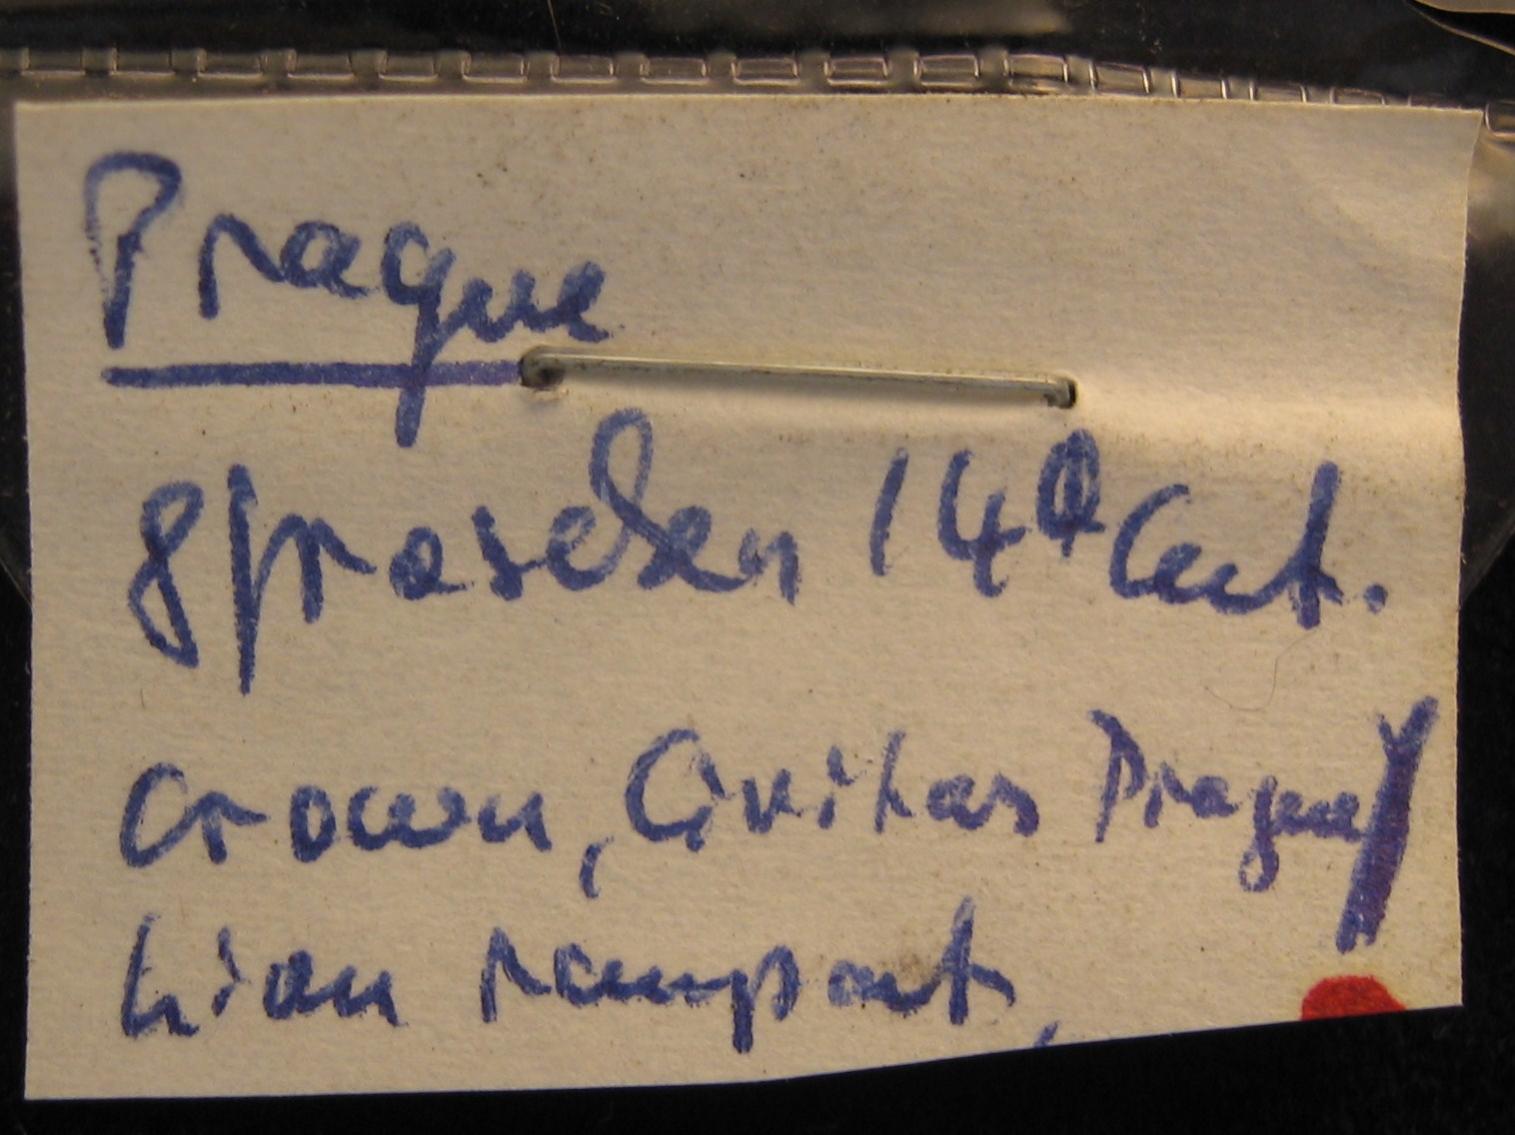 Prague
groschen 14e Cent.
crown, Civitas Prague/
lion rampant,